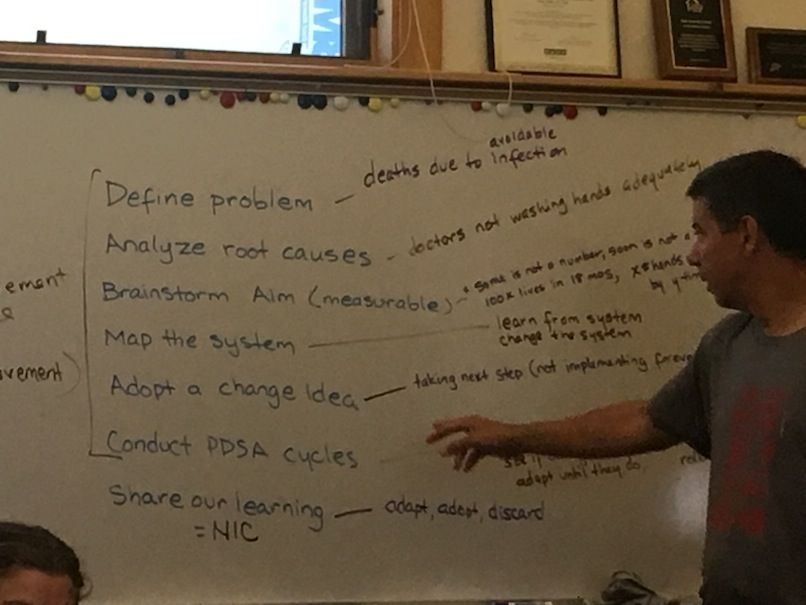 Define problem — deaths due to avoidable infection
Analyze root causes - doctors not washing hands adequately
Brainstorm Aim (measurable) - * some is not a number, soon is not a
100K lives in 18 mos, X% hands
by y
Map the system — learn from system
change the system
Adopt a change idea — taking next step (not implementing
Conduct PDSA cycles
adapt until they do,
Share our learning — adapt, adopt, discard
= NIC
ement
ovement)